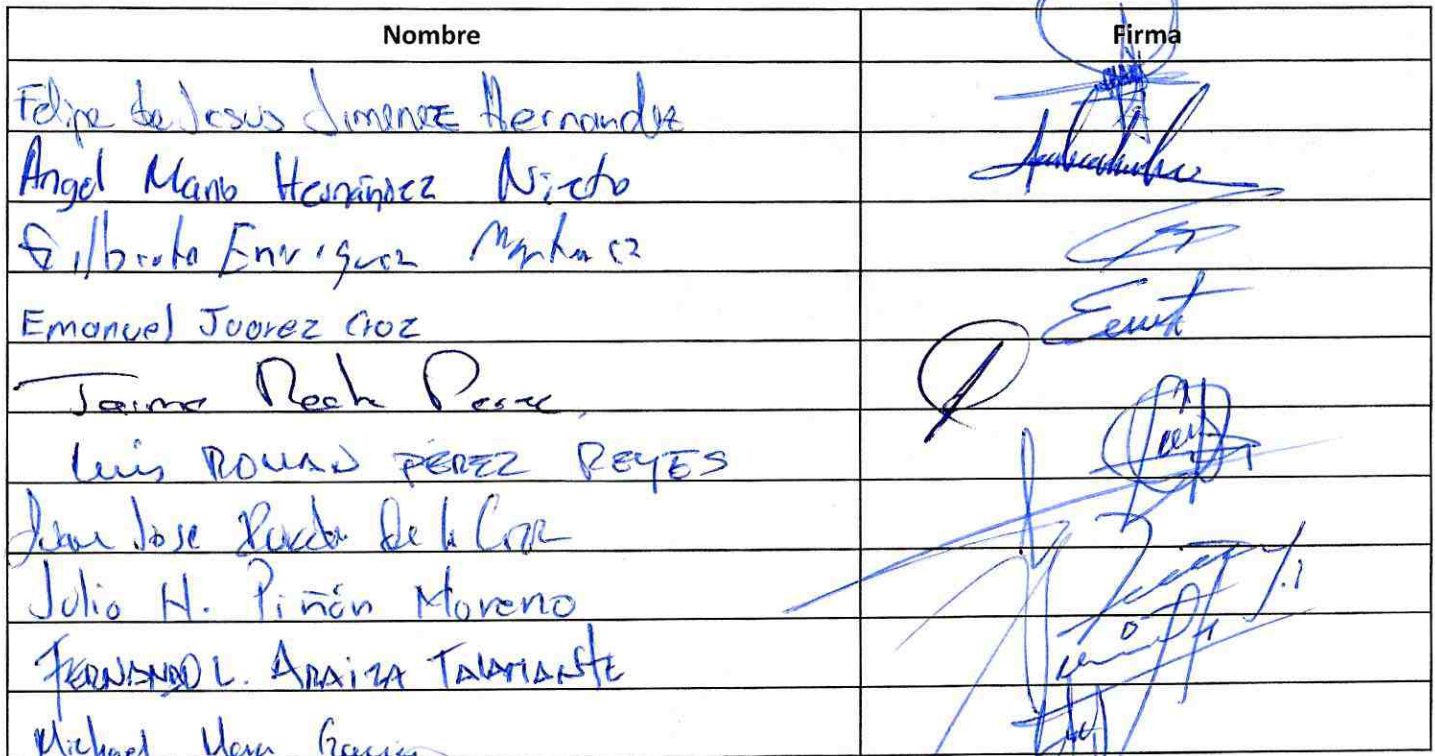 Nombre Firma
Felipe de Jesus Jimenez Hernandez
Angel Mario Hernández Nieto
Gilberto Enriquez
Emanuel Juarez Cruz
Jaime Perez
Luis ROMAN PÉREZ REYES
Juan Jose De la Cruz
Julio H. Piñón Moreno
FERNANDO L. ARAIZA TALAMANTE
Michael Garcia